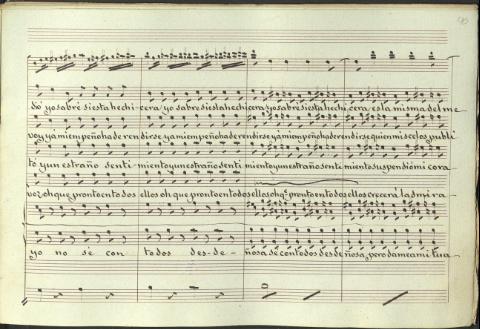 yo sabré si esta hechi-cera yo sabre si esta hechicera yo sabré si esta hechicera esta misma del me
voy y a mi empeño ha de rendirse y a mi empeño ha de rendirse y a mi empeño ha de rendirse quien mis celos publi
tó y un estraño senti-miento y un estraño sentimiento y un estraño sentimiento suspendió mi cora
voz oh que pronto en todos ellos oh que pronto en todos ellos oh q.e pronto en todos ellos crecera la admira
yo no sé con todos des-de-ñosa sé con todos desdeñosa, pero dame a mi tu a